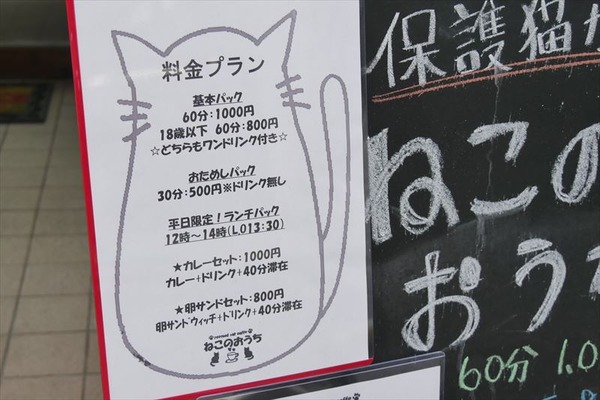 料金プラン
基本パック
60分:1000円
18歳以下 60分:800円
☆どちらもワンドリンク付き☆
おためしパック
30分:500円※ドリンク無し
平日限定!ランチパック
12時～14時(LO13:30)
★カレーセット:1000円
カレー+ドリンク+40分滞在
★卵サンドセット:800円
卵サンドウィッチ+ドリンク+40分滞在
ねこのおうち
保護猫カ
ねこの
おうち
60分 1.0